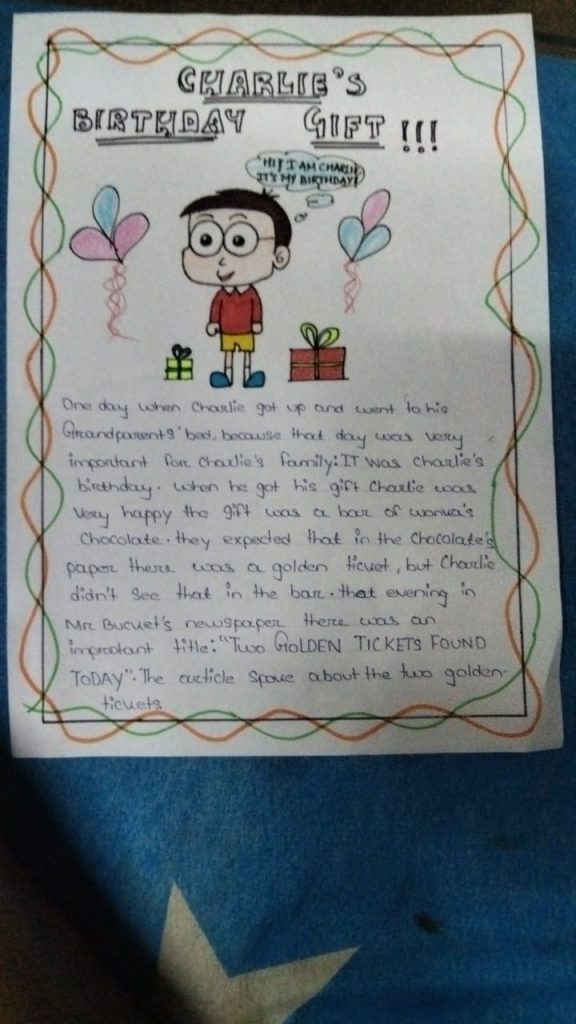 CHARLIE'S
BIRTHDAY GIFT !!!
"HI! I AM CHARLIE
IT'S MY BIRTHDAY!
One day when Charlie got up and went to his
Grandparents' bed, because that day was very
important for Charlie's family: IT was Charlie's
birthday. when he got his gift Charlie was
very happy the gift was a bar of wonka's
Chocolate. they expected that in the Chocolate's
paper there was a golden ticket, but Charlie
didn't see that in the bar. that evening in
Mr Bucket's newspaper there was an
improtant title: "TWO GOLDEN TICKETS FOUND
TODAY". The article spoke about the two golden
tickets